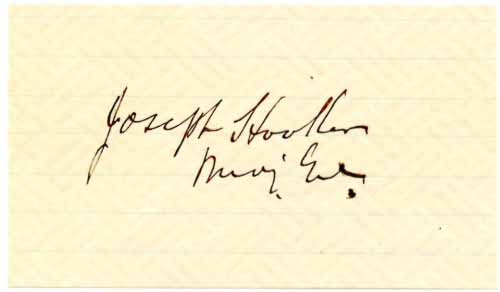 Joseph Hooker
Maj. Genl.